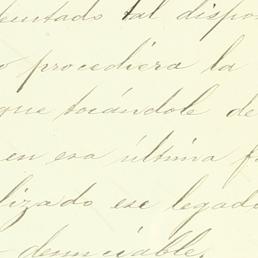 sentado tal dispo
o procediera la
que tocándole de
en esa última f
lizado ese legad
denunciable.